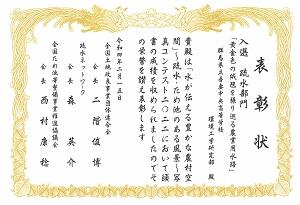 表彰状
入選 疏水部門
「黄金色の絨毯を縁り巡る農業用水路」
群馬県立吾妻中央高等学校
環境工学研究部 殿
貴殿は「水が伝える豊かな農村空
間〜疏水・ため池のある風景〜写
真コンテスト二〇二一において頭
書の成績を収められましたのでそ
の栄誉を讃え表彰します
令和四年二月一五日
全国土地改良事業団体連合会
会長 二階俊博
疏水ネットワーク
会長 森英介
全国ため池等整備事業推進協議会
会長 西村康稔